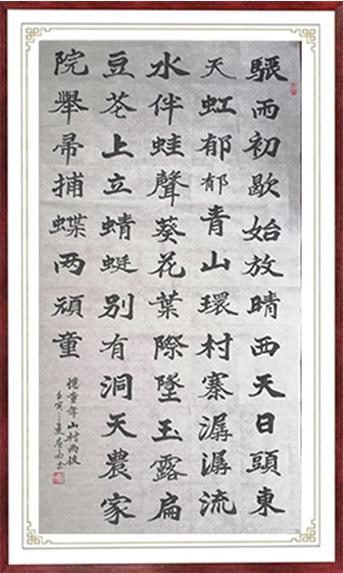 驟雨初歇始放晴西天日頭東
天虹郁郁青山環村寨潺潺流
水伴蛙聲葵花葉際墜玉露扁
豆花上立蜻蜓别有洞天農家
院舉帚捕蝶两頑童
憶童年山村雨後
壬寅之夏